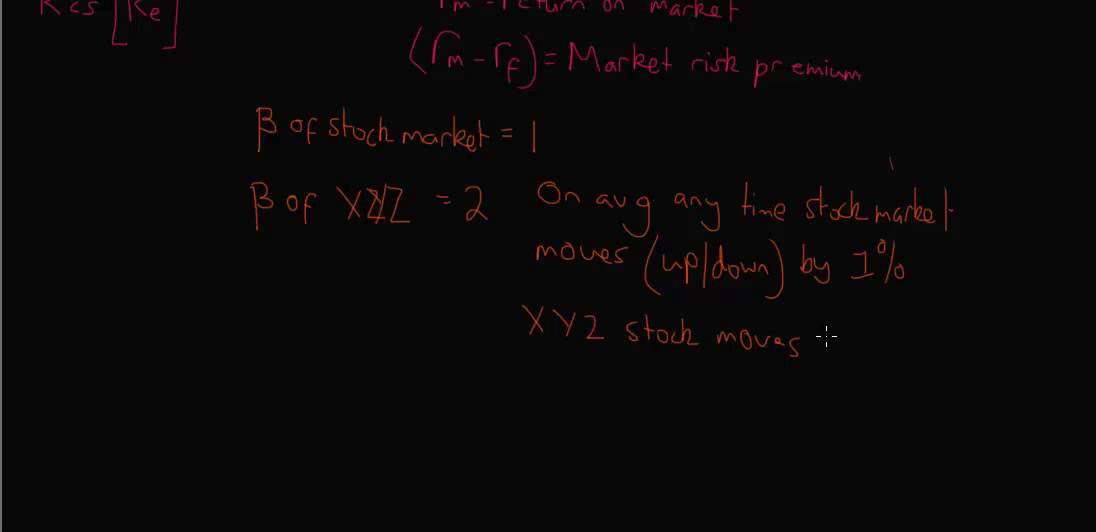 Kcs [Ke]
rm - return on market
(rm - rf) = Market risk premium
β of stock market = 1
β of XYZ = 2 On avg any time stock market
moves (up/down) by 1%
XYZ stock moves